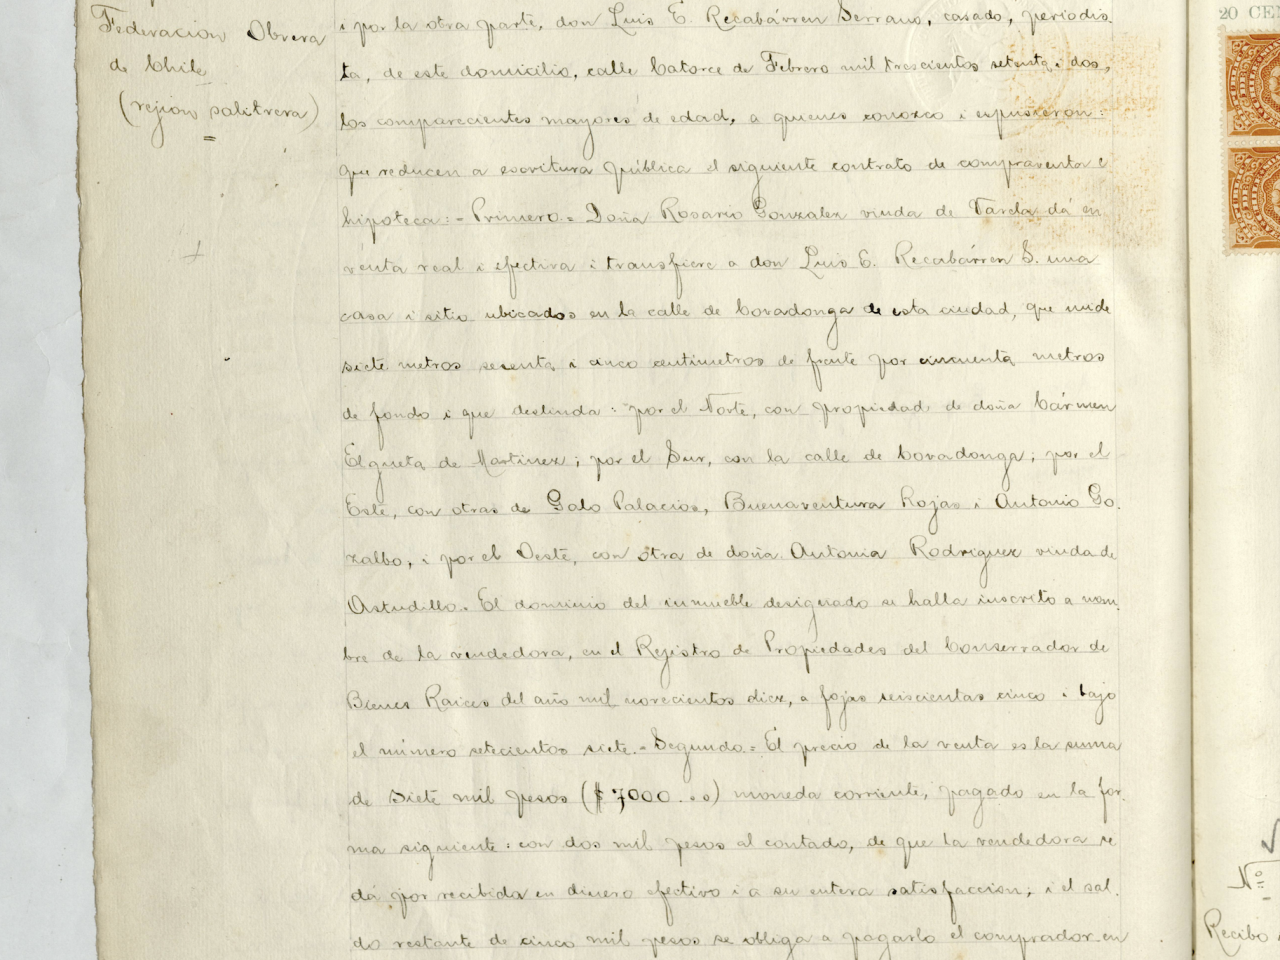 Federacion Obrera
de Chile
(rejion salitrera)
i por la otra parte, don Luis E. Recabárren Serrano, casado, periodis-
ta, de este domicilio, calle Catorce de Febrero mil trescientos setenta i dos,
los comparecientes mayores de edad, a quienes conozco i espusieron:
que reducen a escritura pública el siguiente contrato de compraventa e
hipoteca:- Primero.= Doña Rosario Gonzalez viuda de Varela dá en
venta real i efectiva i transfiere a don Luis E. Recabárren S. una
casa i sitio ubicados en la calle de Covadonga de esta ciudad, que mide
siete metros sesenta i cinco centimetros de frente por cincuenta metros
de fondo i que deslinda: por el Norte, con propiedad de doña Cármen
Elgueta de Martinez; por el Sur, con la calle de Covadonga; por el
Este, con otras de Galo Palacios, Buenaventura Rojas i Antonio Go-
zalbo, i por el Oeste, con otra de doña Antonia Rodriguez viuda de
Astudillo. El dominio del inmueble designado se halla inscrito a nom-
bre de la vendedora, en el Rejistro de Propiedades del Conservador de
Bienes Raices del año mil novecientos diez, a fojas seiscientas cinco i bajo
el número setecientos siete.= Segundo.= El precio de la venta es la suma
de siete mil pesos ($ 7000.oo) moneda corriente, pagado en la for-
ma siguiente: con dos mil pesos al contado, de que la vendedora se
dá por recibida en dinero efectivo i a su entera satisfaccion; i el sal-
do restante de cinco mil pesos se obliga a pagarlo el comprador en
20 CEN
Nº
Recibo